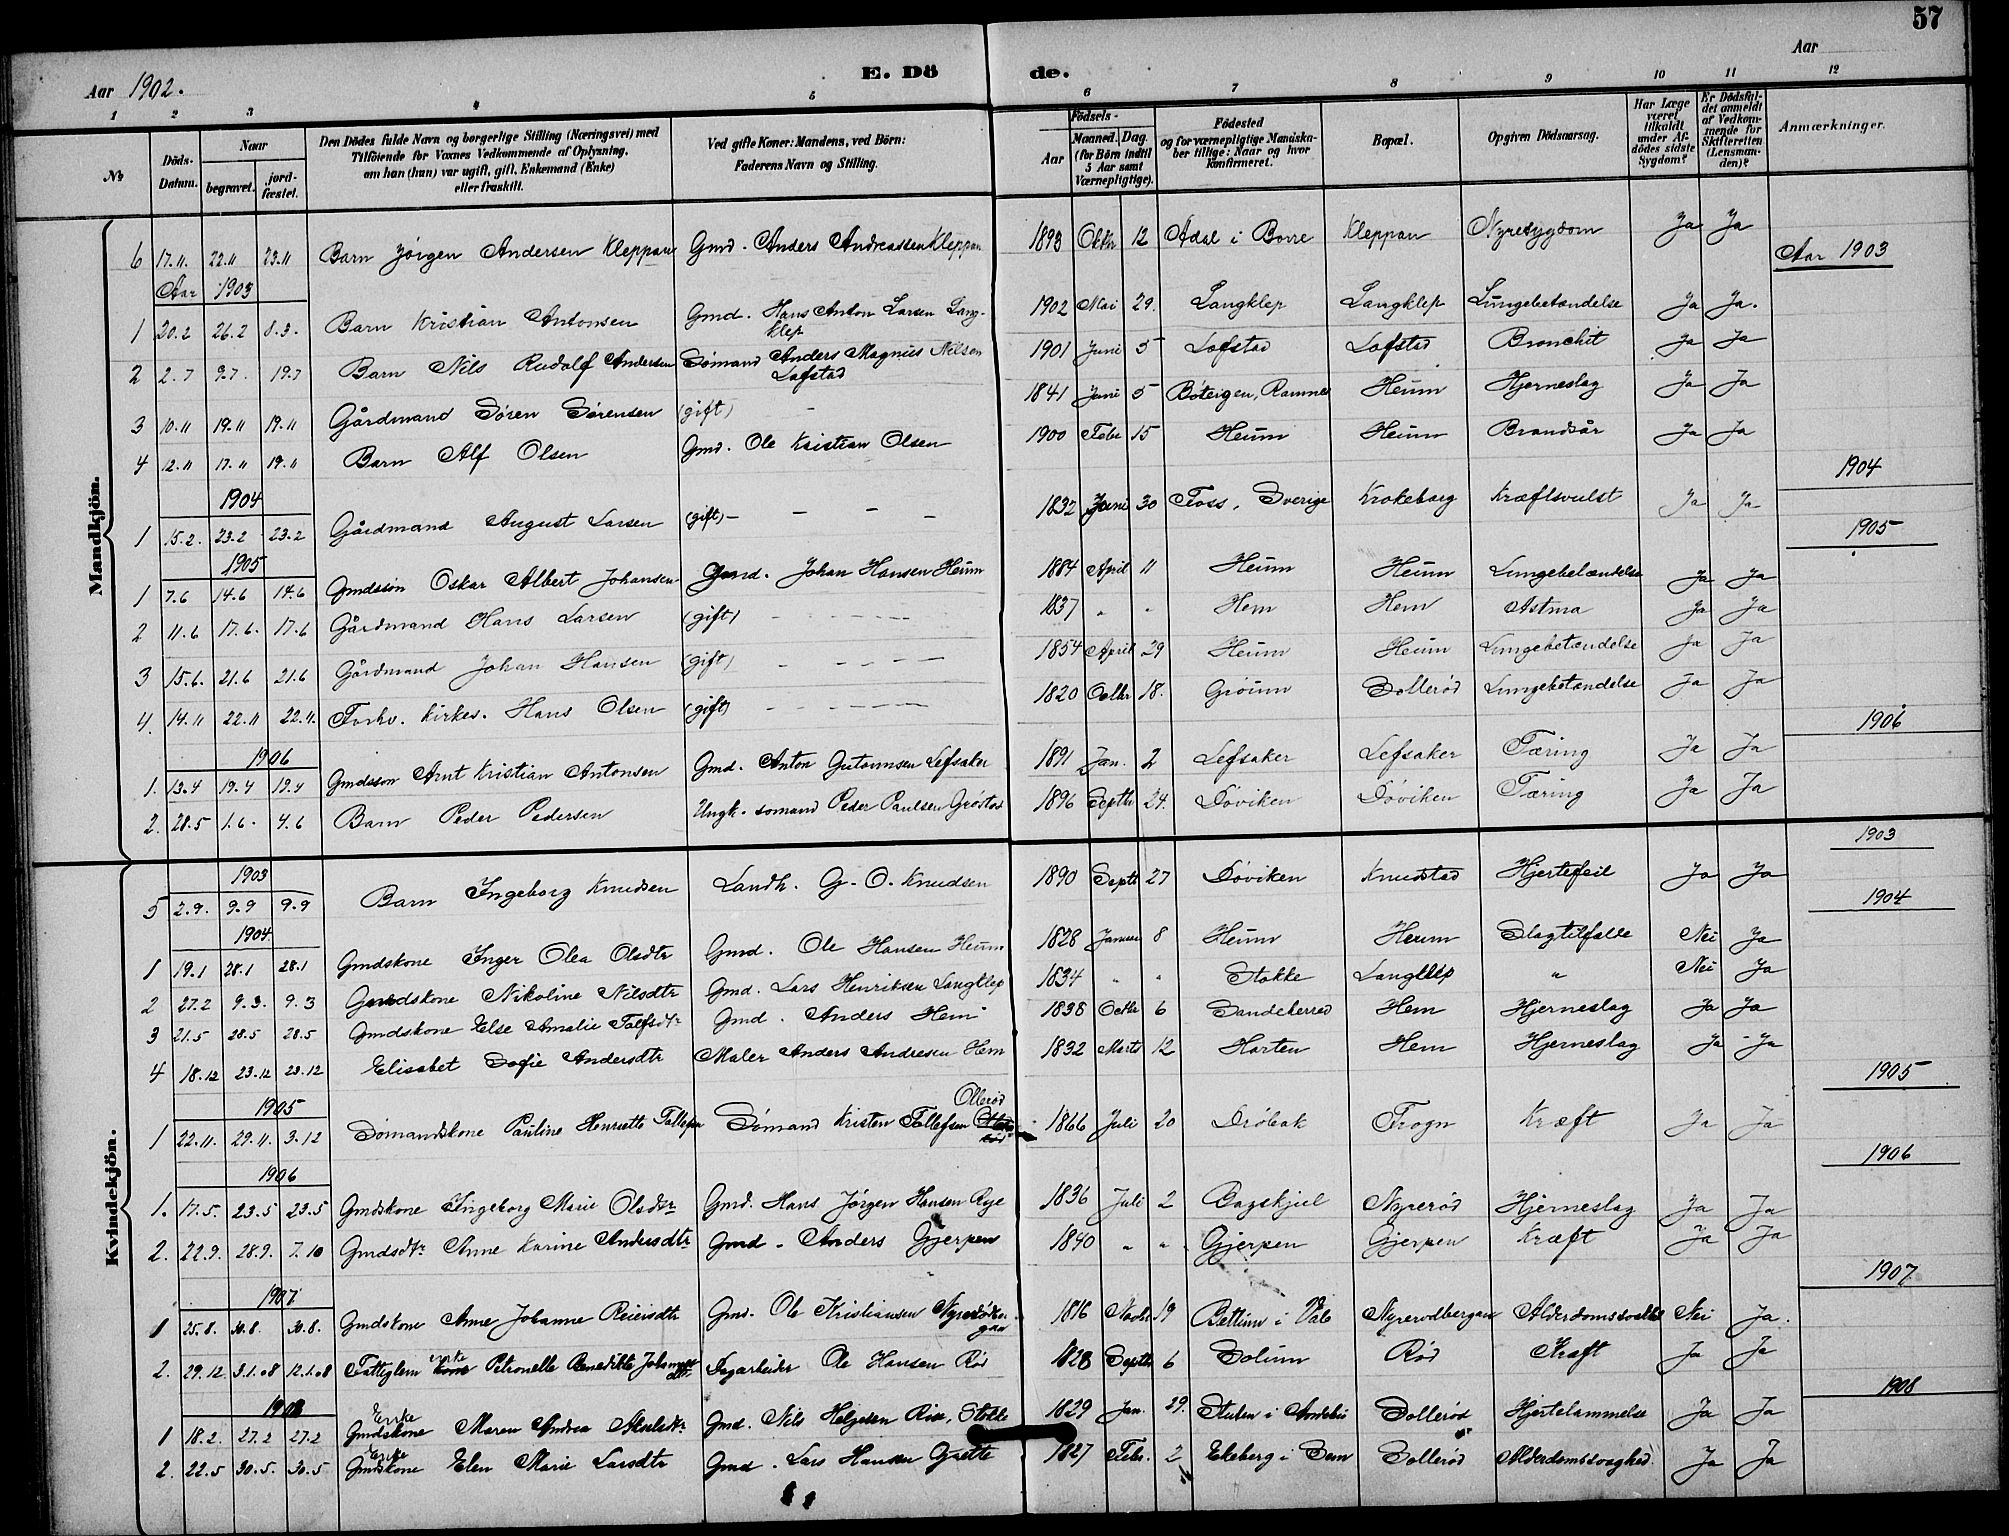 57
Aar 1902. E. Dö de. Aar
1 2 3 4 5 6 7 8 9 10 11 12
No Döds-Datum. Naar begravet. jord-fæstet. Den Dödes fulde Navn og borgerlige Stilling (Næringsvei) med Tilföiende for Voxnes Vedkommende af Oplysning, om han (hun) var ugift, gift, Enkemand (Enke) eller fraskilt. Ved gifte Koner: Mandens, ved Börn: Faderens Navn og Stilling. Födsels- Aar Maaned. Dag. (for Börn indtil 5 Aar samt Værnepligtige). Födested og for værnepligtige Mandskaber tillige: Naar og hvor Konfirmeret. Bopæl. Opgiven Dödsaarsag. Har Læge været tilkaldt under Afdödes sidste Sygdom? Er Dödsfaldet anmeldt af Vedkommende for Skifteretten (Lensmanden)? Anmærkninger.
Mandkjön.
6 17.11 22.11 23.11 Barn Jörgen Andersen Kleppan Gmd. Anders Andreassen Kleppan 1893 Oktr 12 Adal i Borre Kleppan Nyresygdom Ja Ja
Aar 1903 Aar 1903
1 20.2 26.2 8.3. Barn Kristian Antonsen Gmd. Hans Anton Larsen Langklep 1902 Mai 29. Langklep Langklep Lungebetændelse Ja Ja.
2 2.7 9.7. 19.7 Barn Nils Rudolf Andersen Sömand Anders Magnus Nilsen Lofstad 1901 Juni 5 Lofstad Lofstad Bronchit Ja Ja
3 10.11 19.11 19.11 Gårdmand Sören Sörensen (gift) - 1841 Juni 5 Böteigen, Ramnes Heum Hjerneslag Ja Ja
4 12.11 17.11 19.11 Barn Alf Olsen Gmd. Ole Kristian Olsen 1900 Febr 15 Heum Heum Brandsår Ja Ja
1904 1904
1 15.2. 23.2 23.2 Gårdmand August Larsen (gift) - - - - 1832 Juni 30 Foss, Sverige Krokeborg Kræftsvulst Ja Ja
1905 1905
1 7.6 14.6 14.6 Gmdssön Oskar Albert Johansen Gmd. Johan Hansen Heum 1884 April 11 Heum Heum Lungebetændelse Ja Ja
2 11.6 17.6. 17.6 Gårdmand Hans Larsen (gift) - - - - - 1837 " " Hem Hem Astma Ja Ja
3 15.6. 21.6 21.6 Gårdmand Johan Hansen (gift) - - - - - 1854 April 29 Heum Heum Lungebetændelse Ja Ja
4. 14.11 22.11 22.11. Forhv. kirkes. Hans Olsen (gift) - - - - - 1820 Octbr 18. Gröum Solleröd Lungebetændelse Ja Ja
1906 1906
1. 13.4 19.4 19.4 Gmdssön Arnt Kristian Antonsen Gmd. Anton Gutormsen Lefsaker 1891 Jan. 2 Lefsaker Lefsaker Tæring Ja Ja
2. 28.5 1.6. 4.6 Barn Peder Pedersen Ungk. sömand Peder Paulsen Gröstad 1896 Septb 24. Döviken Döviken Tæring Ja Ja
Kvindekjön.
1903 1903
5 2.9. 9.9 9.9 Barn Ingeborg Knudsen Landh. G. O. Knudsen 1890 Septb 27 Döviken Knudstad Hjertefeil Ja Ja
1904 1904
1 19.1 28.1 28.1 Gmdskone Inger Olea Olsdtr Gmd. Ole Hansen Heum 1828 Januar 8 Heum Heum Slagtilfælde Nei Ja
2 27.2 9.3. 9.3 Gmdskone Nikoline Nilsdtr Gmd. Lars Henriksen Langklep 1834 " " Stokke Langklep " Nei Ja
3 21.5 28.5 28.5 Gmdskone Else Amalie Tolfsdtr Gmd. Anders Hem 1838 Octbr 6 Sandeherred Hem Hjerneslag Ja Ja
4 18.12 23.12 23.12 Elisabet Sofie Andersdtr Maler Anders Andresen Hem 1832 Marts 12 Horten Hem Hjerneslag Ja Ja
1905 1905
1 22.11. 29.11. 3.12 Sömandskone Pauline Henriette Tollefsen Sömand Kristen Tollefsen Olleröd 1866 Juli 20 Dröbak Frogn Kræft Ja Ja
1906 1906
1. 17.5. 23.5 23.5 Gmdskone Ingeborg Marie Olsdtr Gmd. Hans Jörgen Hansen Rye 1836 Juli 2 Bagskjul Nyreröd Hjerneslag Ja Ja
2. 22.9. 28.9. 7.10 Gmdsdtr Anne Karine Andersdtr Gmd. Anders Gjerpen 1840 " " Gjerpen Gjerpen Kræft Ja Ja
1907 1907
1 25.8. 30.8. 30.8. Gmdskone Anne Johanne Reiersdtr Gmd. Ole Kristiansen 1816 Novbr 19 Bettum i Våle Nyrerödbergan Nei Ja.
2. 29.12. 3.1.08 12.1.08 Fattiglem enke Petronelle Benedikte Johannesdtr Dagarbeider Ole Hansen Röd 1828 Septbr 6 Solum Röd Kræft Ja Ja
1908 1908
1 18.2. 27.2 27.2 Enke Gmdskone Maren Andrea Gmd. Nils Helgesen Rise, Stokke 1829 Jan. 29. Stulen i Andebu Solleröd Hjertelammelse Ja Ja
2. 22.5 30.5. 30.5 Enke Gmdskone Elen Marie Larsdtr Gmd. Lars Hansen 1827 Febr. 2 Ekeberg i Sem Solleröd Alderdomssvaghed Ja Ja